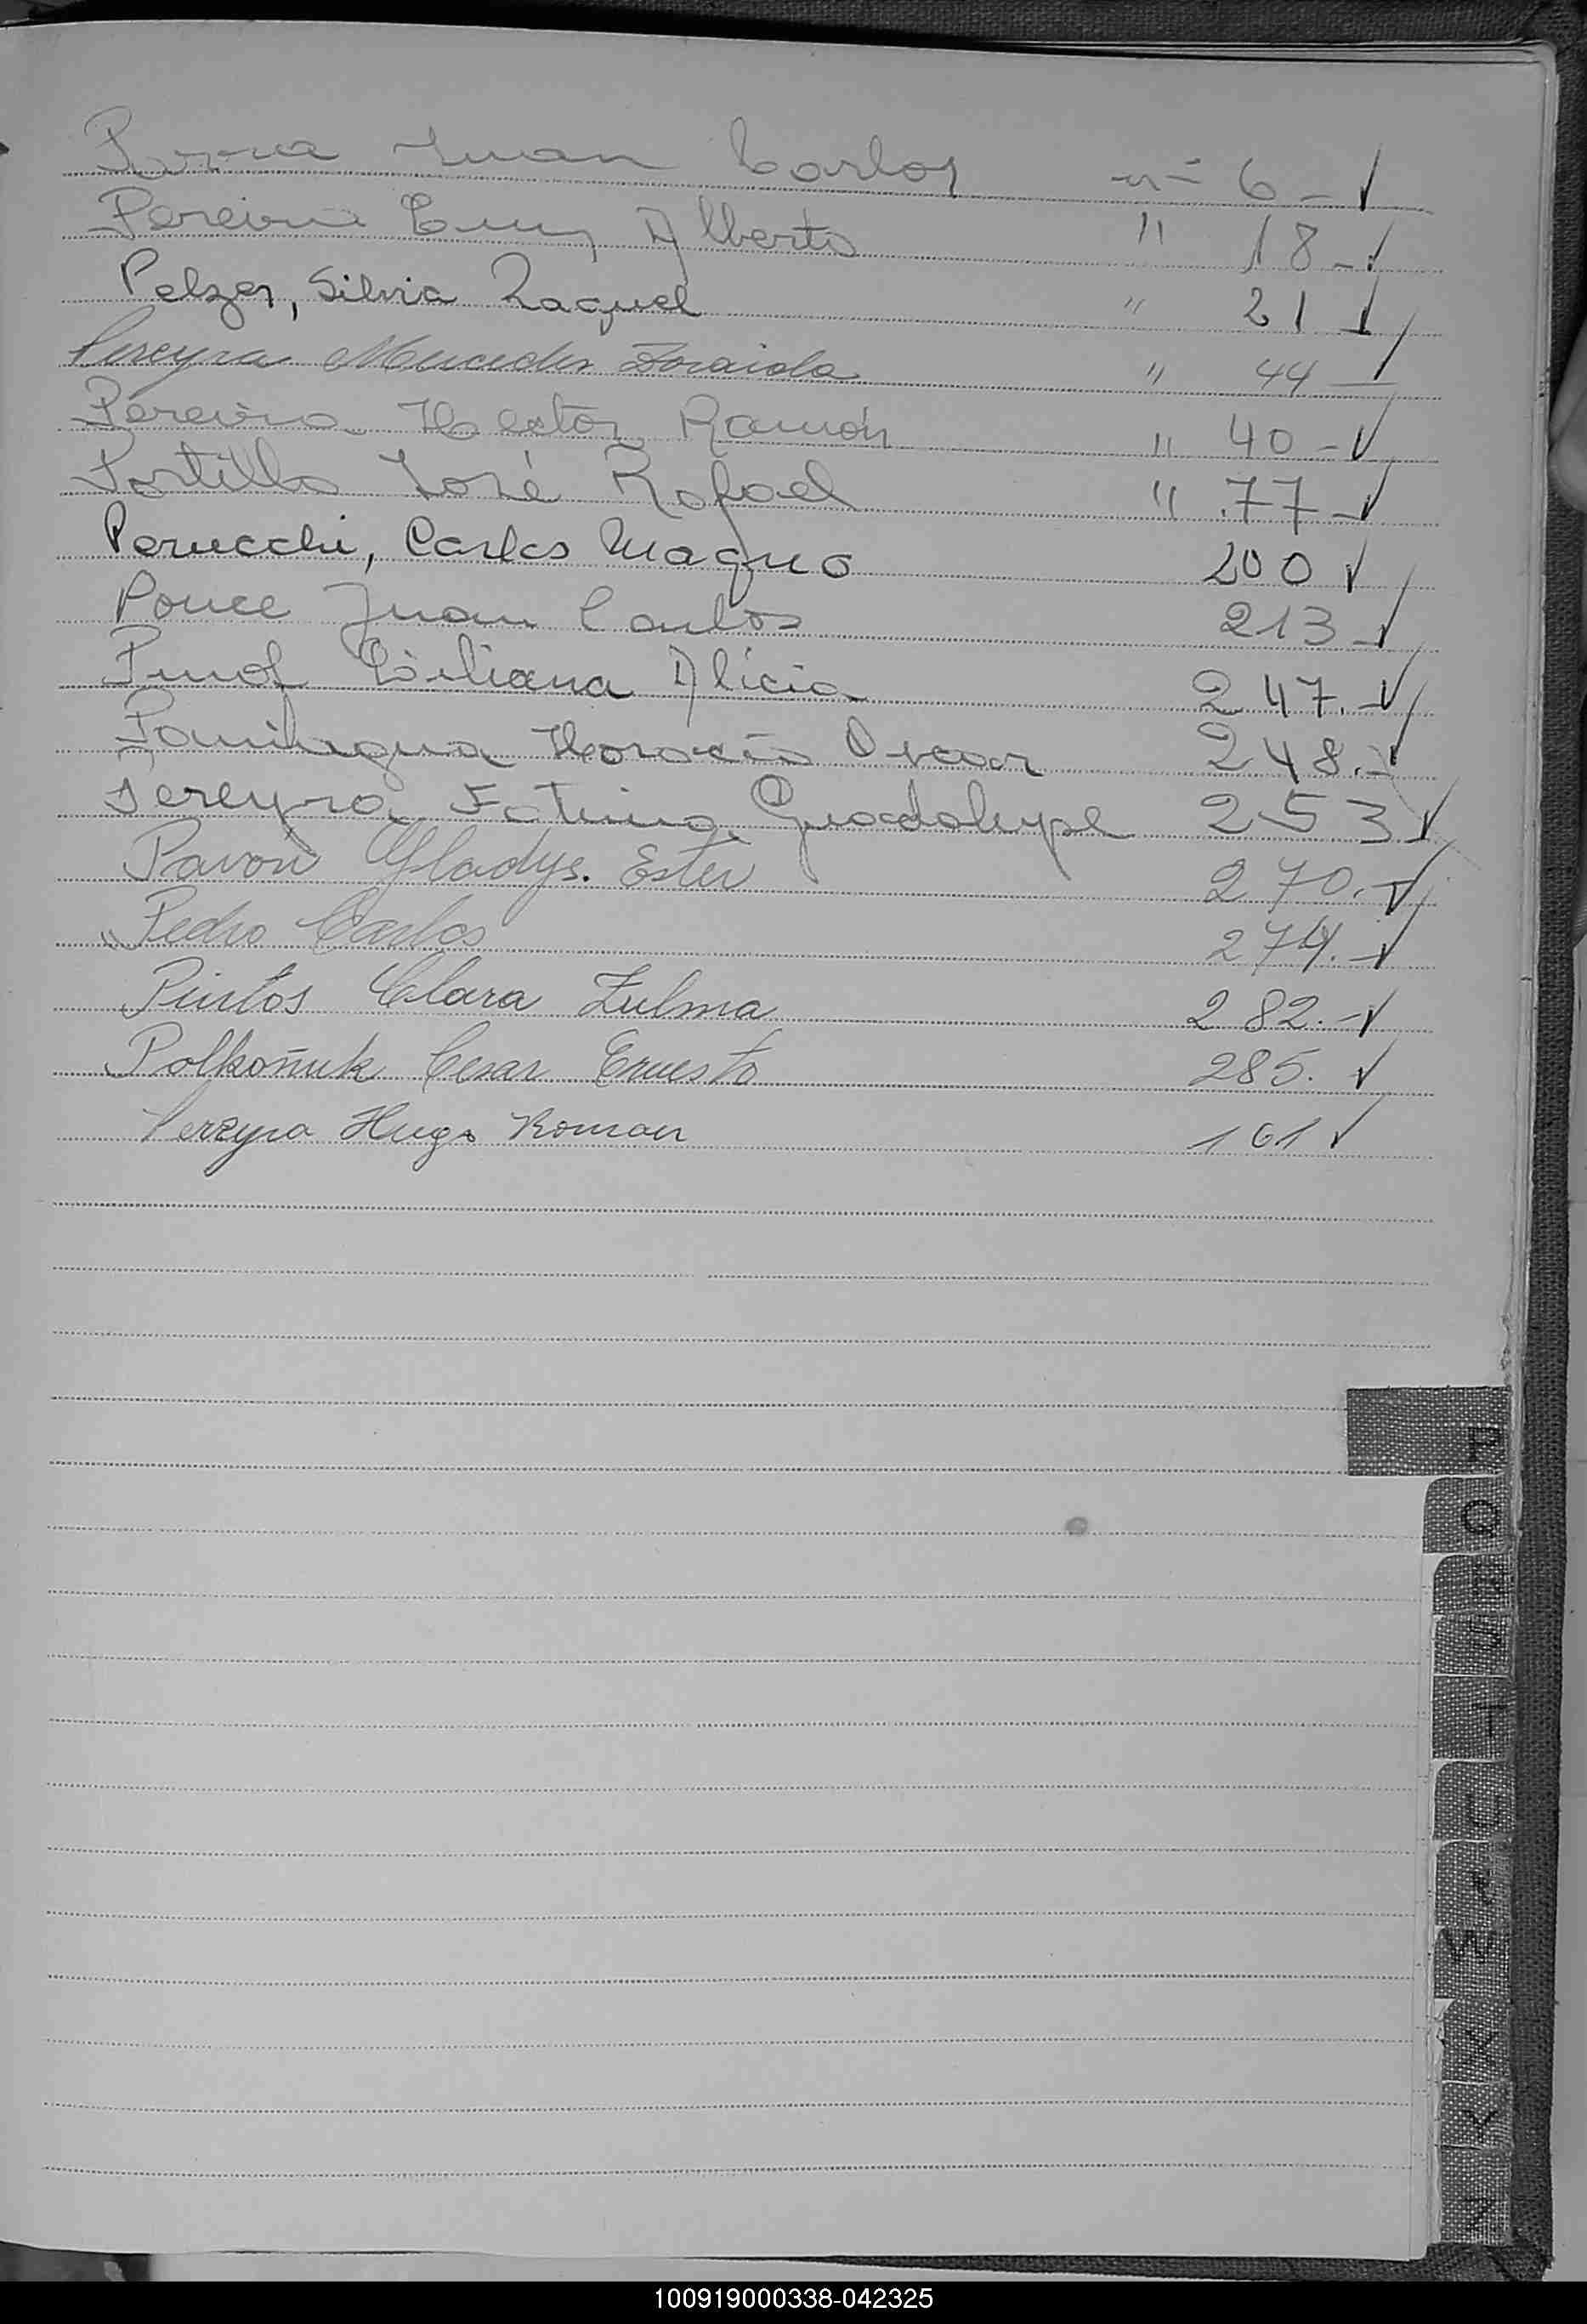 Juan Carlos nº 6 - ✓
Pereira Luis Alberto " 18 - ✓
Pelzer, Silvia Raquel " 21 ✓
Pereyra Mercedes Zoraida " 44 - ✓
Pereira Hector Ramón " 40 - ✓
Portillo José Rafael " 77 - ✓
Perucchi, Carlos Magno 200 ✓
Ponce Juan Carlos 213 - ✓
Liliana Alicia 247. - ✓
Horacio Oscar 248. - ✓
Pereyra Fatima Guadalupe 253 ✓
Pavon Gladys. Ester 270. - ✓
Pedro Carlos 274. - ✓
Pintos Clara Zulma 282. - ✓
Polkoñuk Cesar Ernesto 285. ✓
Pereyra Hugo Roman 161 ✓
P
Q
R
T
U
W
X
Y
Z
100919000338-042325